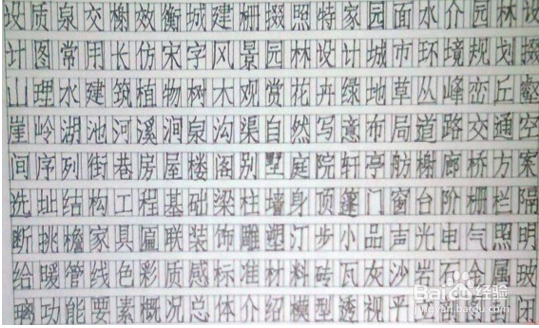 玟质泉交榭效衡城建栅掇照特家园面水介园林设
计图常用长仿宋字风景园林设计城市环境规划掇
山理水建筑植物树木观赏花卉绿地草丛峰峦丘壑
崖岭湖池河溪涧泉沟渠自然写意布局道路交通空
间序列街巷房屋楼阁别墅庭院轩亭舫榭廊桥方案
选址结构工程基础梁柱墙身顶篷门窗台阶栅栏隔
断挑檐家具匾联装饰雕塑汀步小品声光电气照明
给暖管线色彩质感标准材料砖瓦灰沙岩石金属玻
璃功能要素概况总体介绍模型透视平
Baidu经验